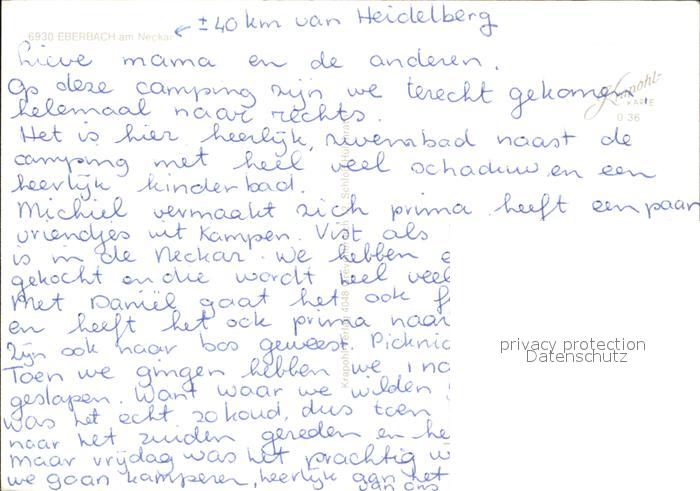 ± 40 km van Heidelberg
6930 EBERBACH am Neckar
Lieve mama en de anderen.
Op deze camping zijn we terecht gekomen
helemaal naar rechts.
Het is hier heerlijk, zwembad naast de
camping met heel veel schaduw en een
heerlijk kinderbad.
Michiel vermaakt zich prima heeft een paar
vriendjes uit Kampen. Vist als
is in de Neckar. We hebben e
gekocht en die wordt heel veel
Met Daniël gaat het ook f
en heeft het ook prima naar
Zijn ook naar bos geweest. Picknic
Toen we gingen hebben we 1 na
geslapen. Want waar we wilden
was het echt zo koud, dus toen
naar het zuiden gereden en he
maar vrijdag was het prachtig w
we gaan kamperen, heerlijk aan het
van ons
Krapohl-
KARTE
0 36
Krapohl-Verlag 4048 Grevenbroich Schloß Hülchrath
privacy protection
Datenschutz